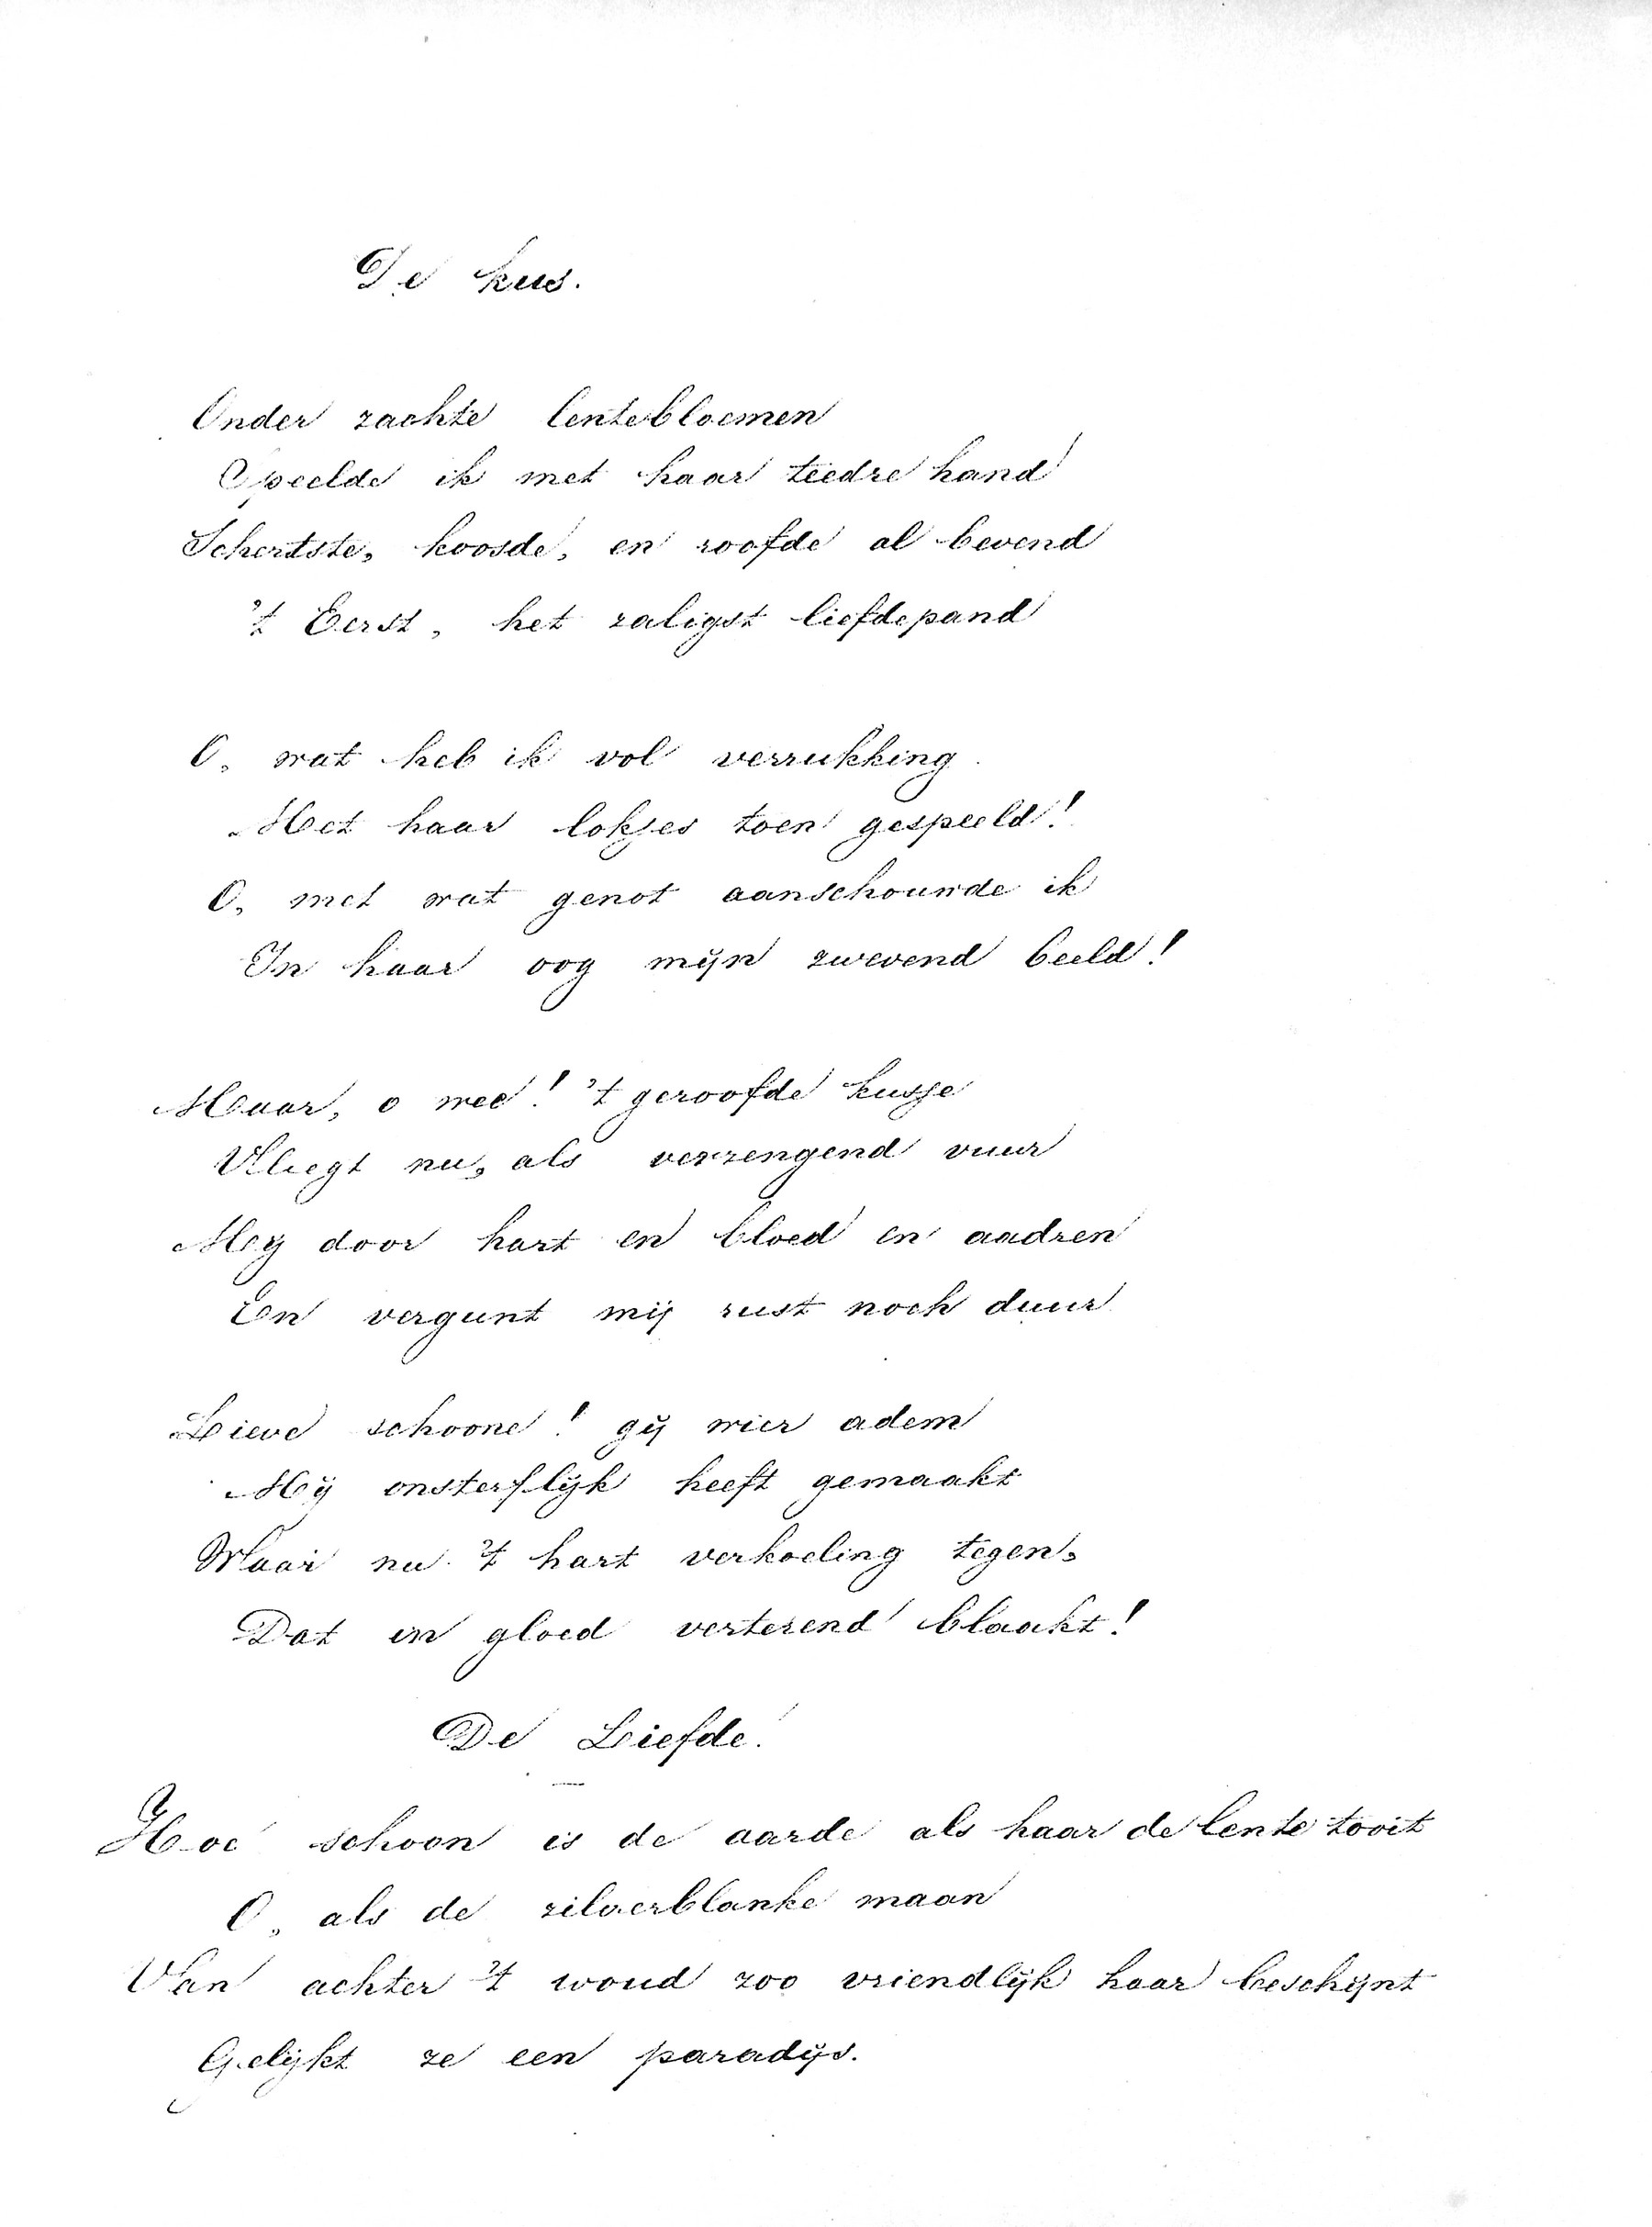 De kus.
Onder zachte lentebloemen
Speelde ik met haar teedre hand
Schertste, koosde, en roofde al bevend
't Eerst, het zaligst liefdepand
O, wat heb ik vol verrukking
Met haar lokjes toen gespeeld!
O, met wat genot aanschouwde ik
In haar oog mijn zwevend beeld!
Maar, o wee! 't geroofde kusje
Vliegt nu, als verzengend vuur
Mij door hart en bloed en aadren
En vergunt mij rust noch duur
Lieve schoone! gij wier adem
Mij onsterflijk heeft gemaakt
Waai nu 't hart verkoeling tegen,
Dat in gloed verterend blaakt!
De Liefde.
Hoe schoon is de aarde als haar de lente tooit
O, als de zilverblanke maan
Van achter 't woud zoo vriendlijk haar beschijnt
Gelijkt ze een paradijs.